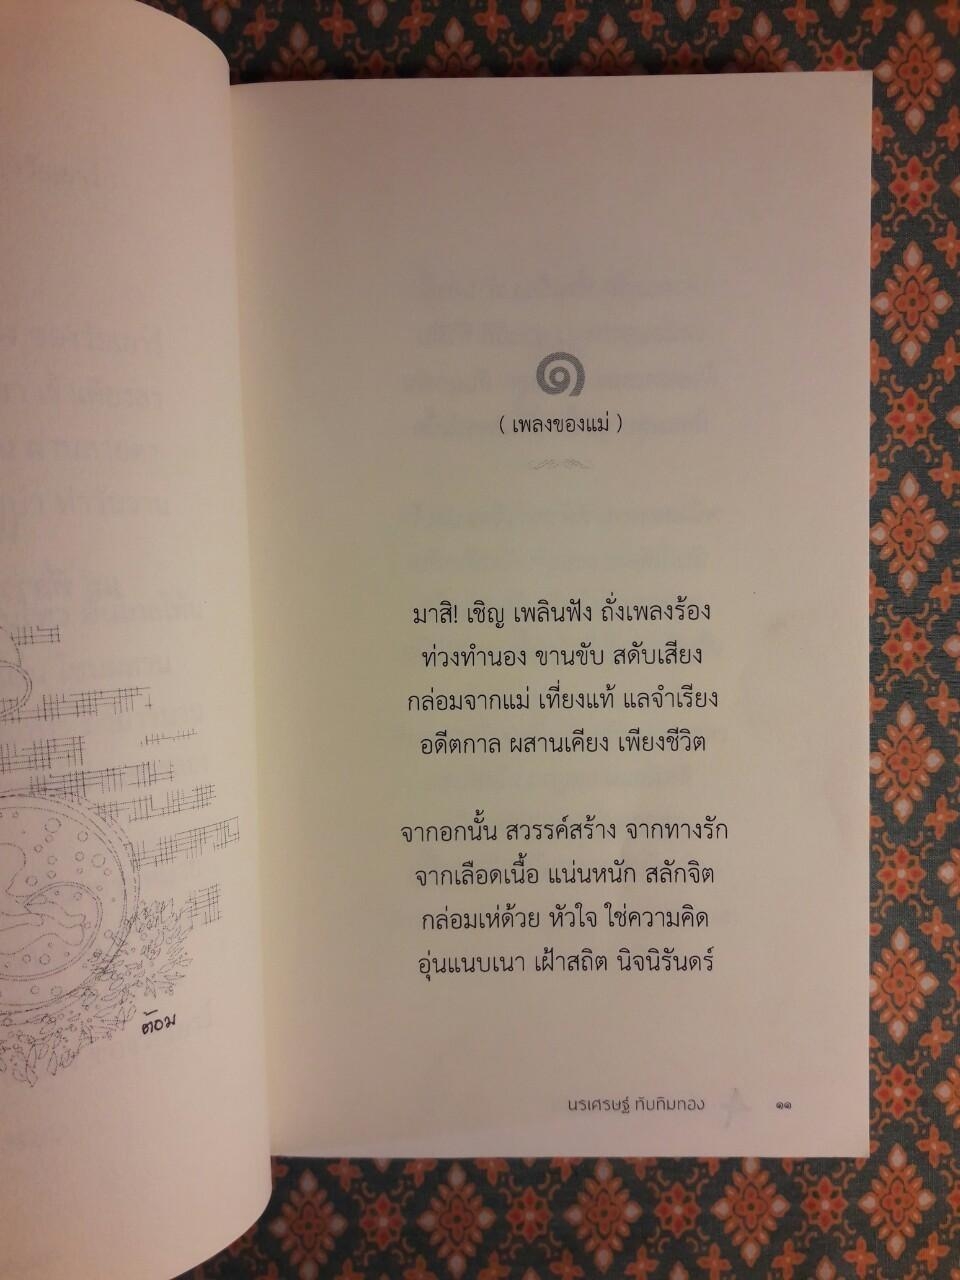 ๑
( เพลงของแม่ )
มาสิ! เชิญ เพลินฟัง ถั่งเพลงร้อง
ท่วงทำนอง ขานขับ สดับเสียง
กล่อมจากแม่ เที่ยงแท้ แลจำเรียง
อดีตกาล ผสานเคียง เพียงชีวิต
จากอกนั้น สวรรค์สร้าง จากทางรัก
จากเลือดเนื้อ แน่นหนัก สลักจิต
กล่อมเห่ด้วย หัวใจ ใช่ความคิด
อุ่นแนบเนา เฝ้าสถิต นิจนิรันดร์
ต้อม
นรเศรษฐ์ ทับทิมทอง
๑๑